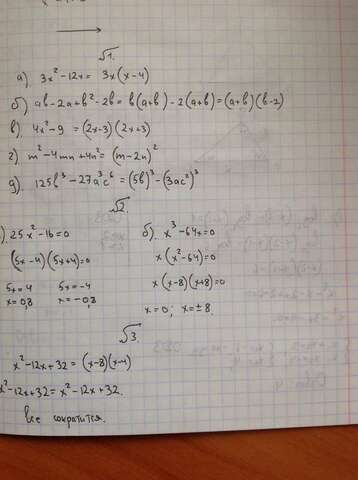 √1.
а) 3x² - 12x = 3x(x - 4)
б) ab - 2a + b² - 2b = b(a+b) - 2(a+b) = (a+b)(b-2)
в) 4x² - 9 = (2x-3)(2x+3)
г) m² - 4mn + 4n² = (m - 2n)²
д) 125b³ - 27a³c⁶ = (5b)³ - (3ac²)³
√2.
). 25x² - 16 = 0 б) x³ - 64x = 0
(5x - 4)(5x + 4) = 0 x(x² - 64) = 0
5x = 4 5x = -4 x(x - 8)(x + 8) = 0
x = 0,8 x = -0,8 x = 0; x = ±8.
√3.
x² - 12x + 32 = (x-8)(x-4)
x² - 12x + 32 = x² - 12x + 32.
все сократится.